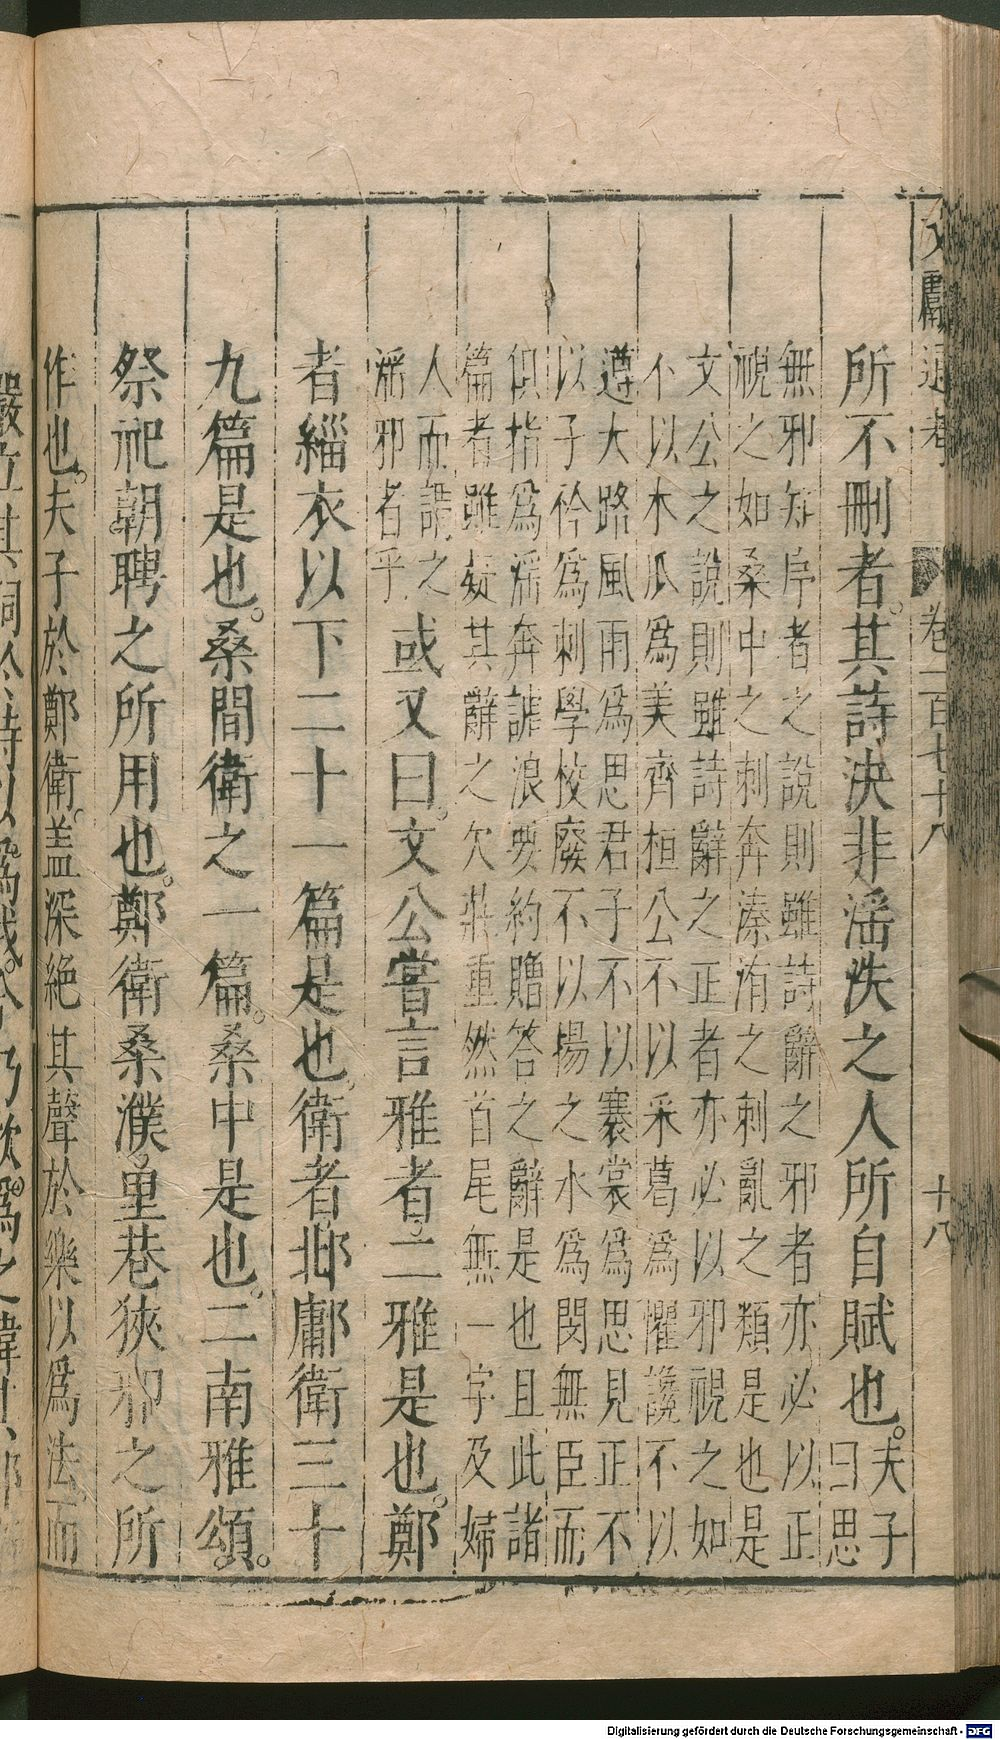 文獻通考 卷一百七十八 十八
所不刪者其詩決非淫泆之人所自賦也夫子
曰思
無邪如序者之說則雖詩辭之邪者亦必以正
視之如桑中之刺奔溱洧之刺亂之類是也是
文公之說則雖詩辭之正者亦必以邪視之如
不以木瓜為美齊桓公不以采葛為懼讒不以
遵大路風雨為思君子不以褰裳為思見正不
以子衿為刺學校廢不以揚之水為閔無臣而
但指為淫奔謔浪要約贈答之辭是也且此諸
篇者雖疑其辭之欠莊重然首尾無一字及婦
人而謂之
淫邪者乎
或又曰文公嘗言雅者二雅是也鄭
者緇衣以下二十一篇是也衛者邶鄘衛三十
九篇是也桑間衛之一篇桑中是也二南雅頌
祭祀朝聘之所用也鄭衛桑濮里巷狹邪之所
作也夫子於鄭衛蓋深絕其聲於樂以為法而
Digitalisierung gefördert durch die Deutsche Forschungsgemeinschaft - DFG